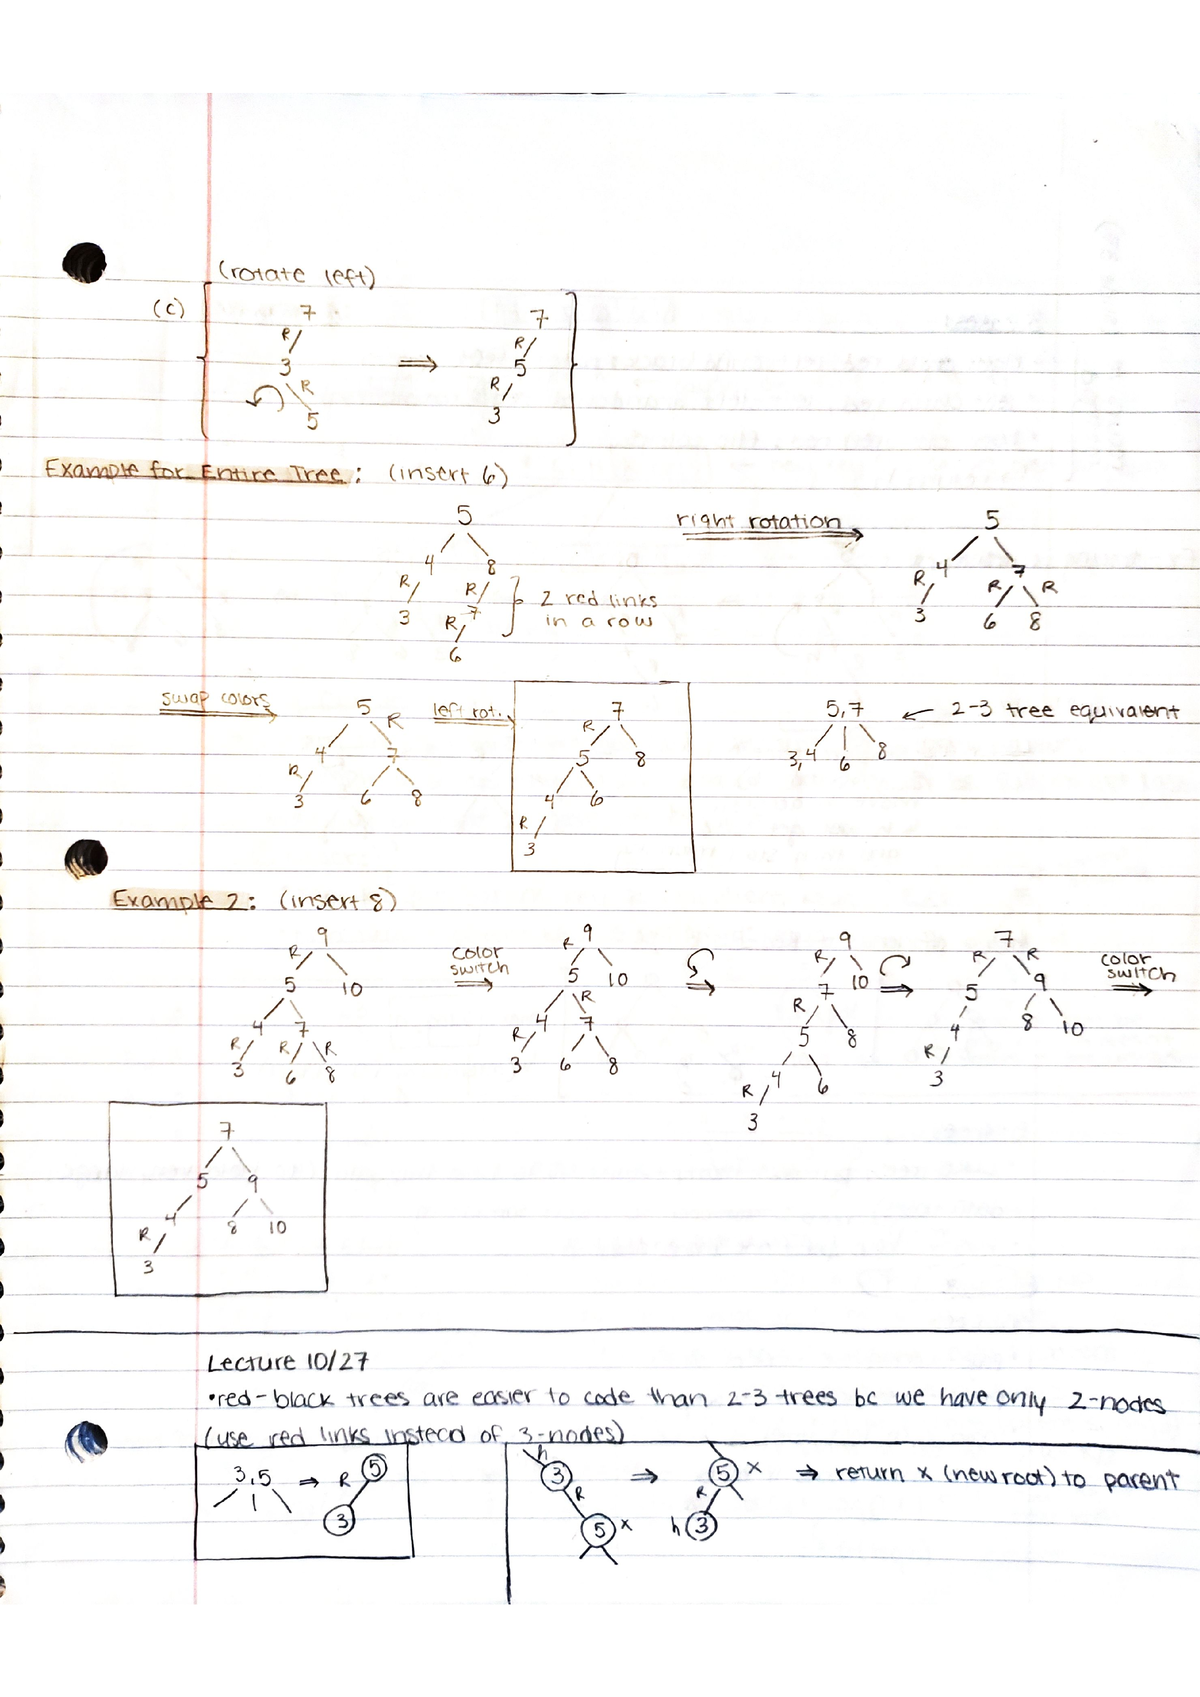 (rotate left)
(c)
7 7
R R
3 ⇒ 5
R R
5 3
Example for Entire Tree: (insert 6)
5 right rotation 5
4 8 4 7
R R R R R
3 7 2 red links 3 6 8
R in a row
6
swap colors 5 R left rot. 7 5,7 ← 2-3 tree equivalent
R
4 7 5 8 3,4 6 8
R
3 6 8 4 6
R
3
Example 2: (insert 8)
9 9 9 7
R color R R R R color
switch switch
5 10 ⇒ 5 10 ⇒ 7 10 ⇒ 5 9 ⇒
R R
4 7 4 7 5 8 4 8 10
R R R R R
3 6 8 3 6 8 4 6 3
R
3
7
5 9
4 8 10
R
3
Lecture 10/27
•red-black trees are easier to code than 2-3 trees bc we have only 2-nodes
(use red links instead of 3-nodes)
3,5 ⇒ R 5 h 3 ⇒ 5 x ⇒ return x (new root) to parent
R R
3 5 x h 3